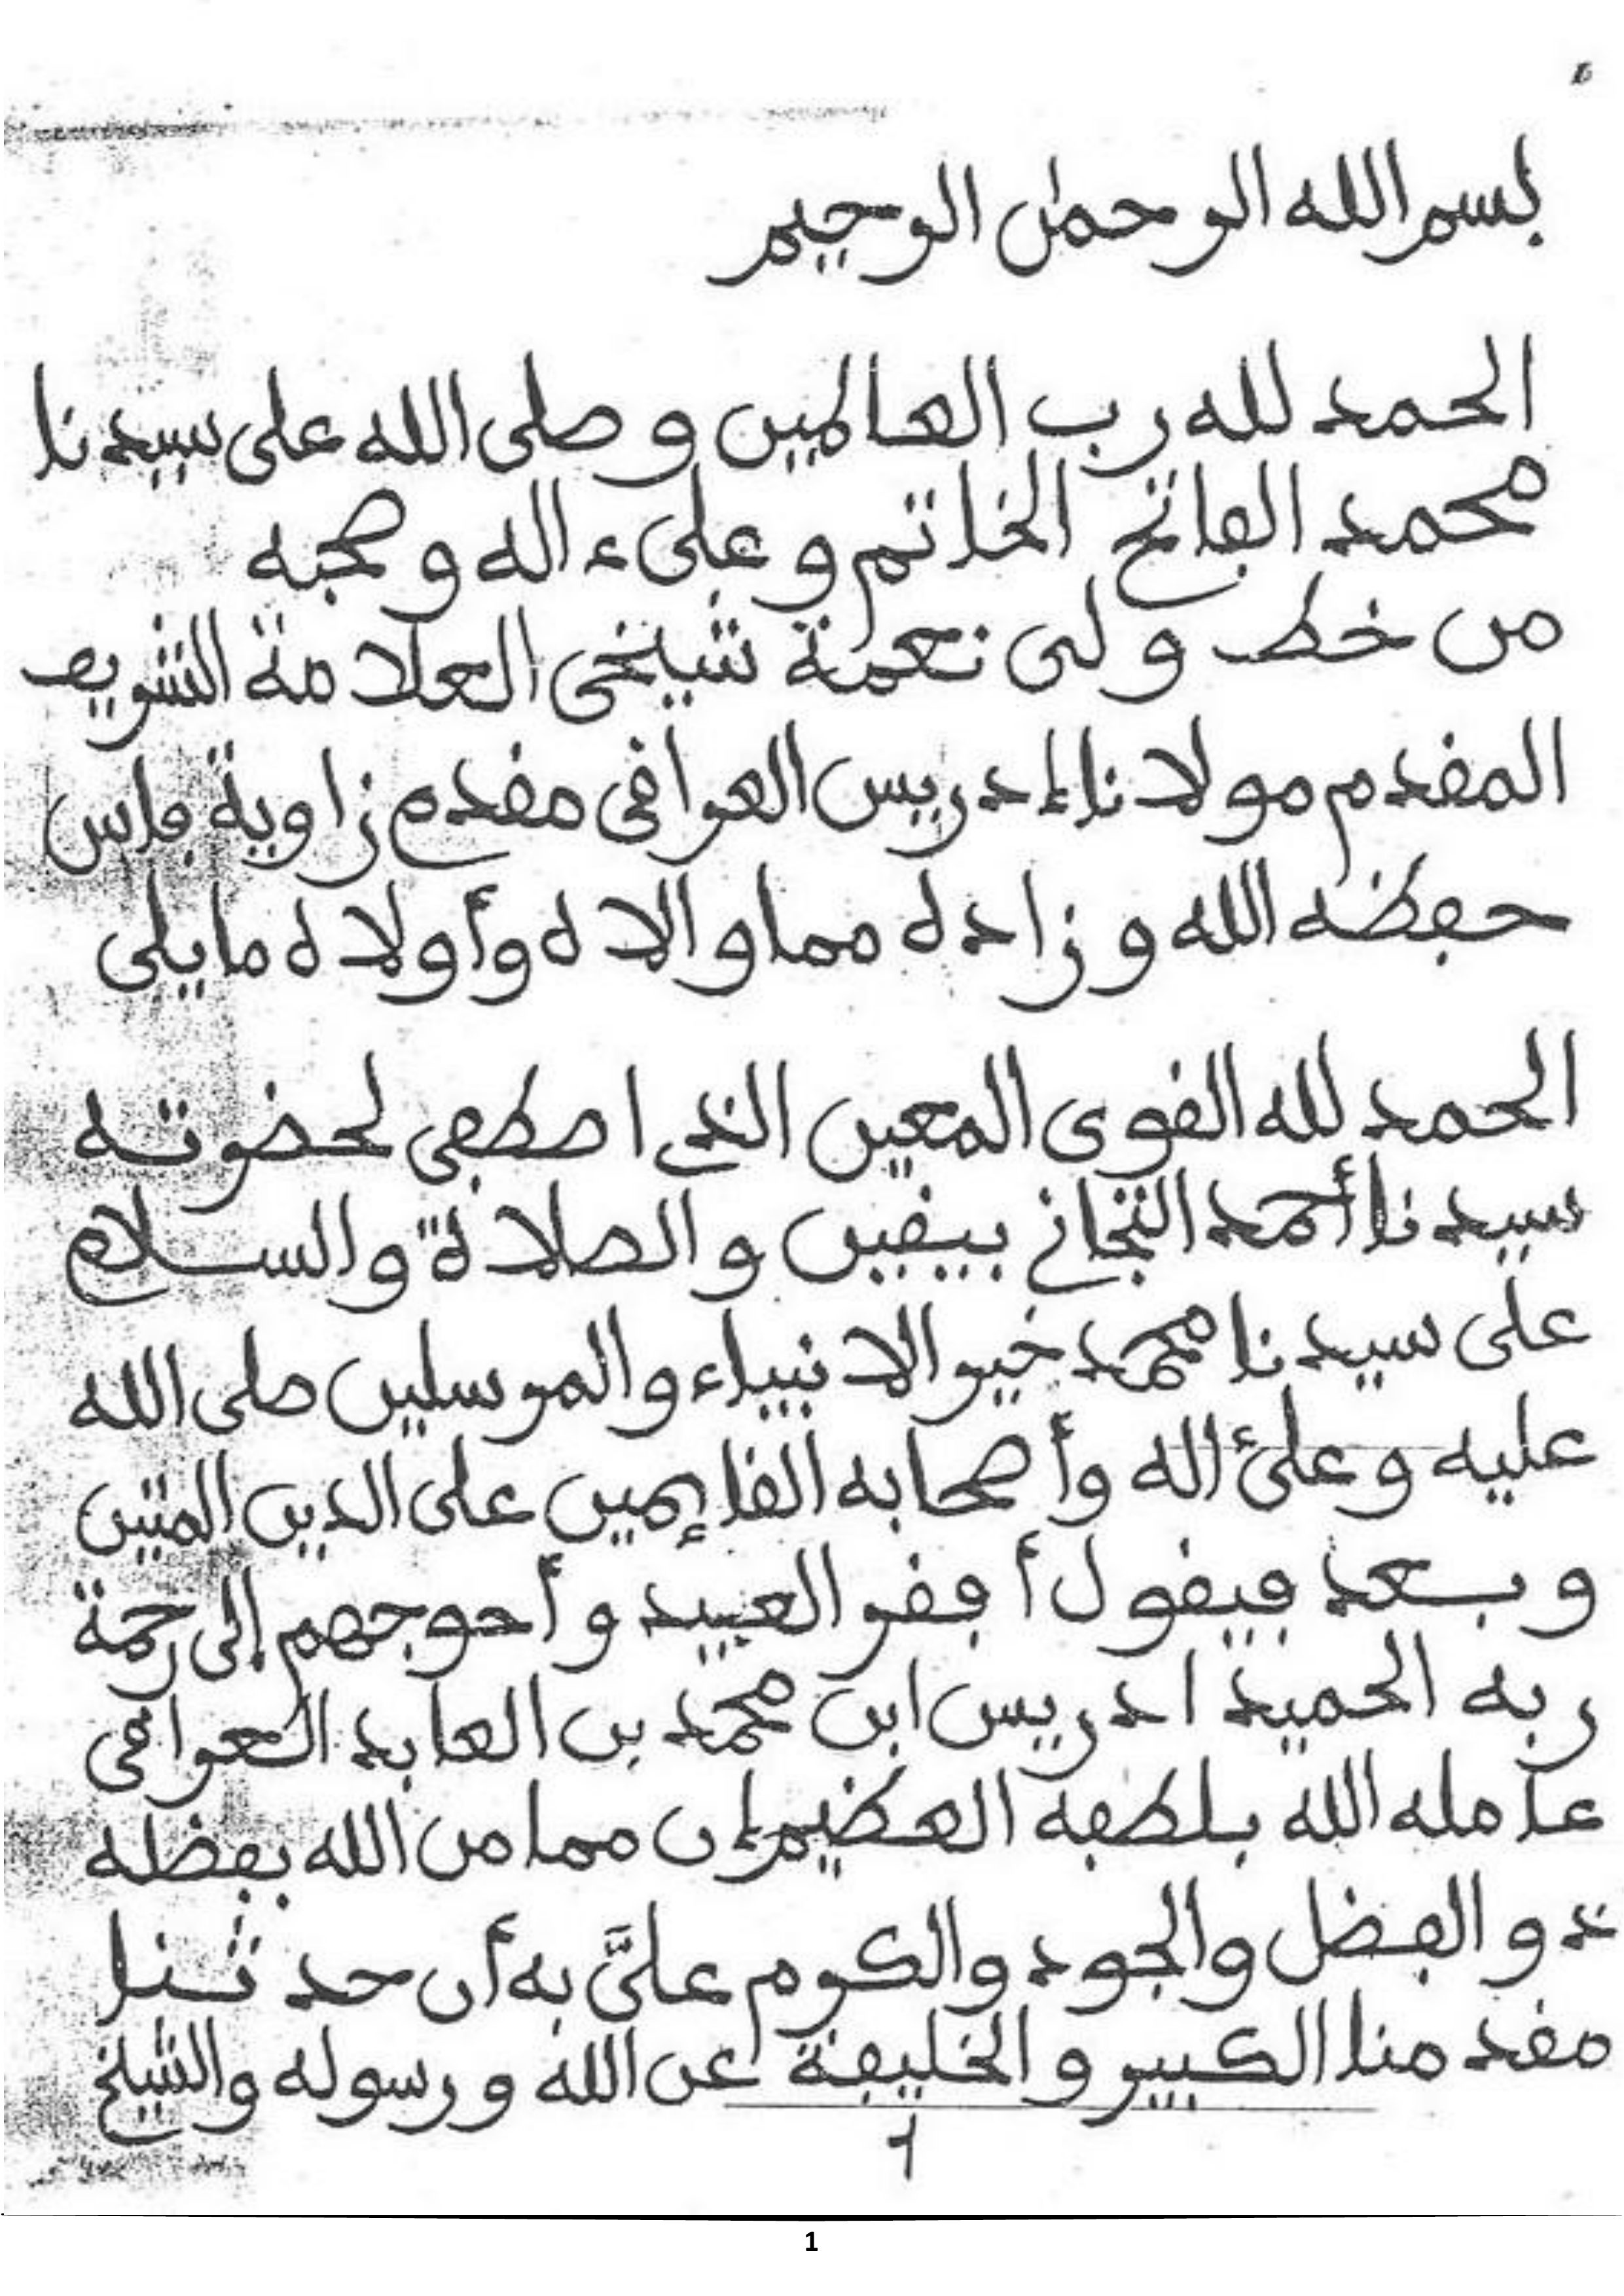 بسم الله الرحمٰن الرحيم
الحمد لله رب العالمين و صلى الله على سيدنا
محمد الفاتح الخاتم و على ءاله و صحبه
من خط و لى نعمة شيخى العلامة الشريف
المقدم مولانا إدريس العراقى مقدم زاوية فاس
حفظه الله و زاده مما والاه وأولاه ما يلى
الحمد لله القوى المعين الذى اصطفى لحضرته
سيدنا أحمد التجانى بيقين و الصلاة والسلام
على سيدنا محمد خير الانبياء والمرسلين صلى الله
عليه و علىٰ اله وأصحابه القايٕمين على الدين المتين
و بعد فيقول أفقر العبيد و أحوجهم إلى رحمة
ربه الحميد ادريس ابن محمد بن العابد العراقى
عامله الله بلطفه العظيم إن مما من الله بفظله
ذو الفضل والجود والكرم علىَّ به أن حدثنا
مقدمنا الكبير و الخليفة عن الله و رسوله والشيخ
1
1